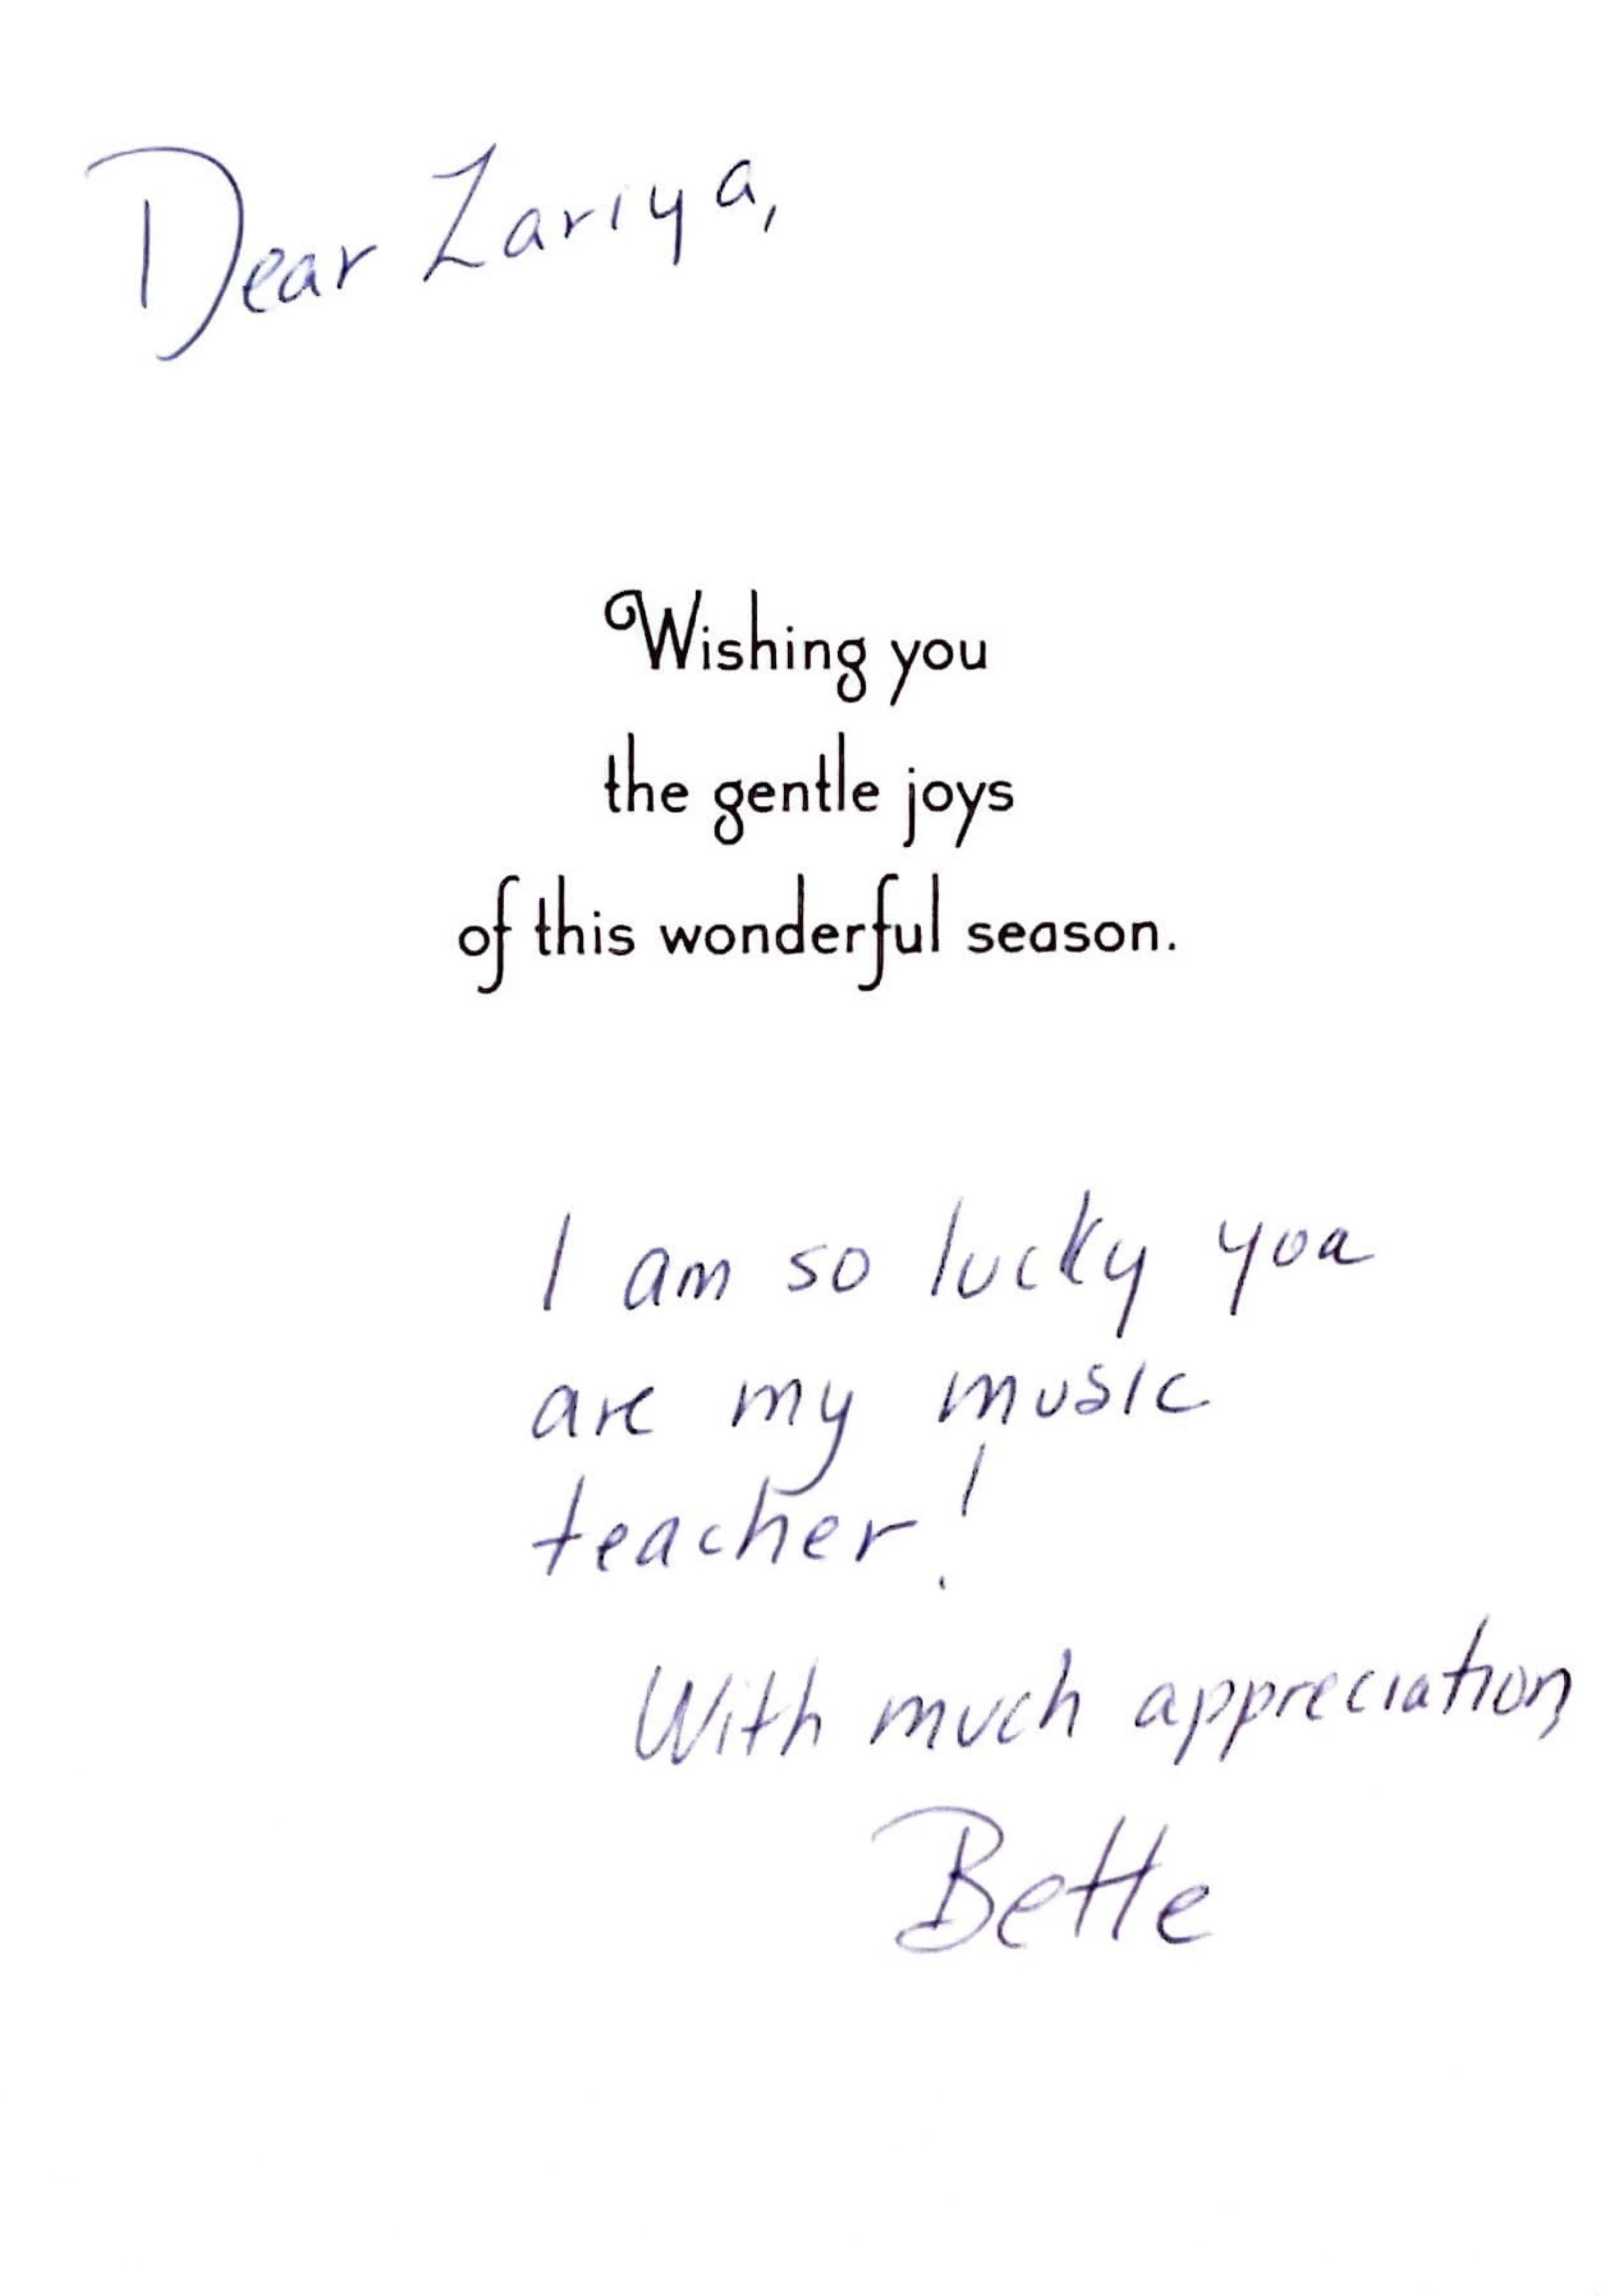 Dear Zariya,
Wishing you
the gentle joys
of this wonderful season.
I am so lucky you
are my music
teacher!
With much appreciation,
Bette